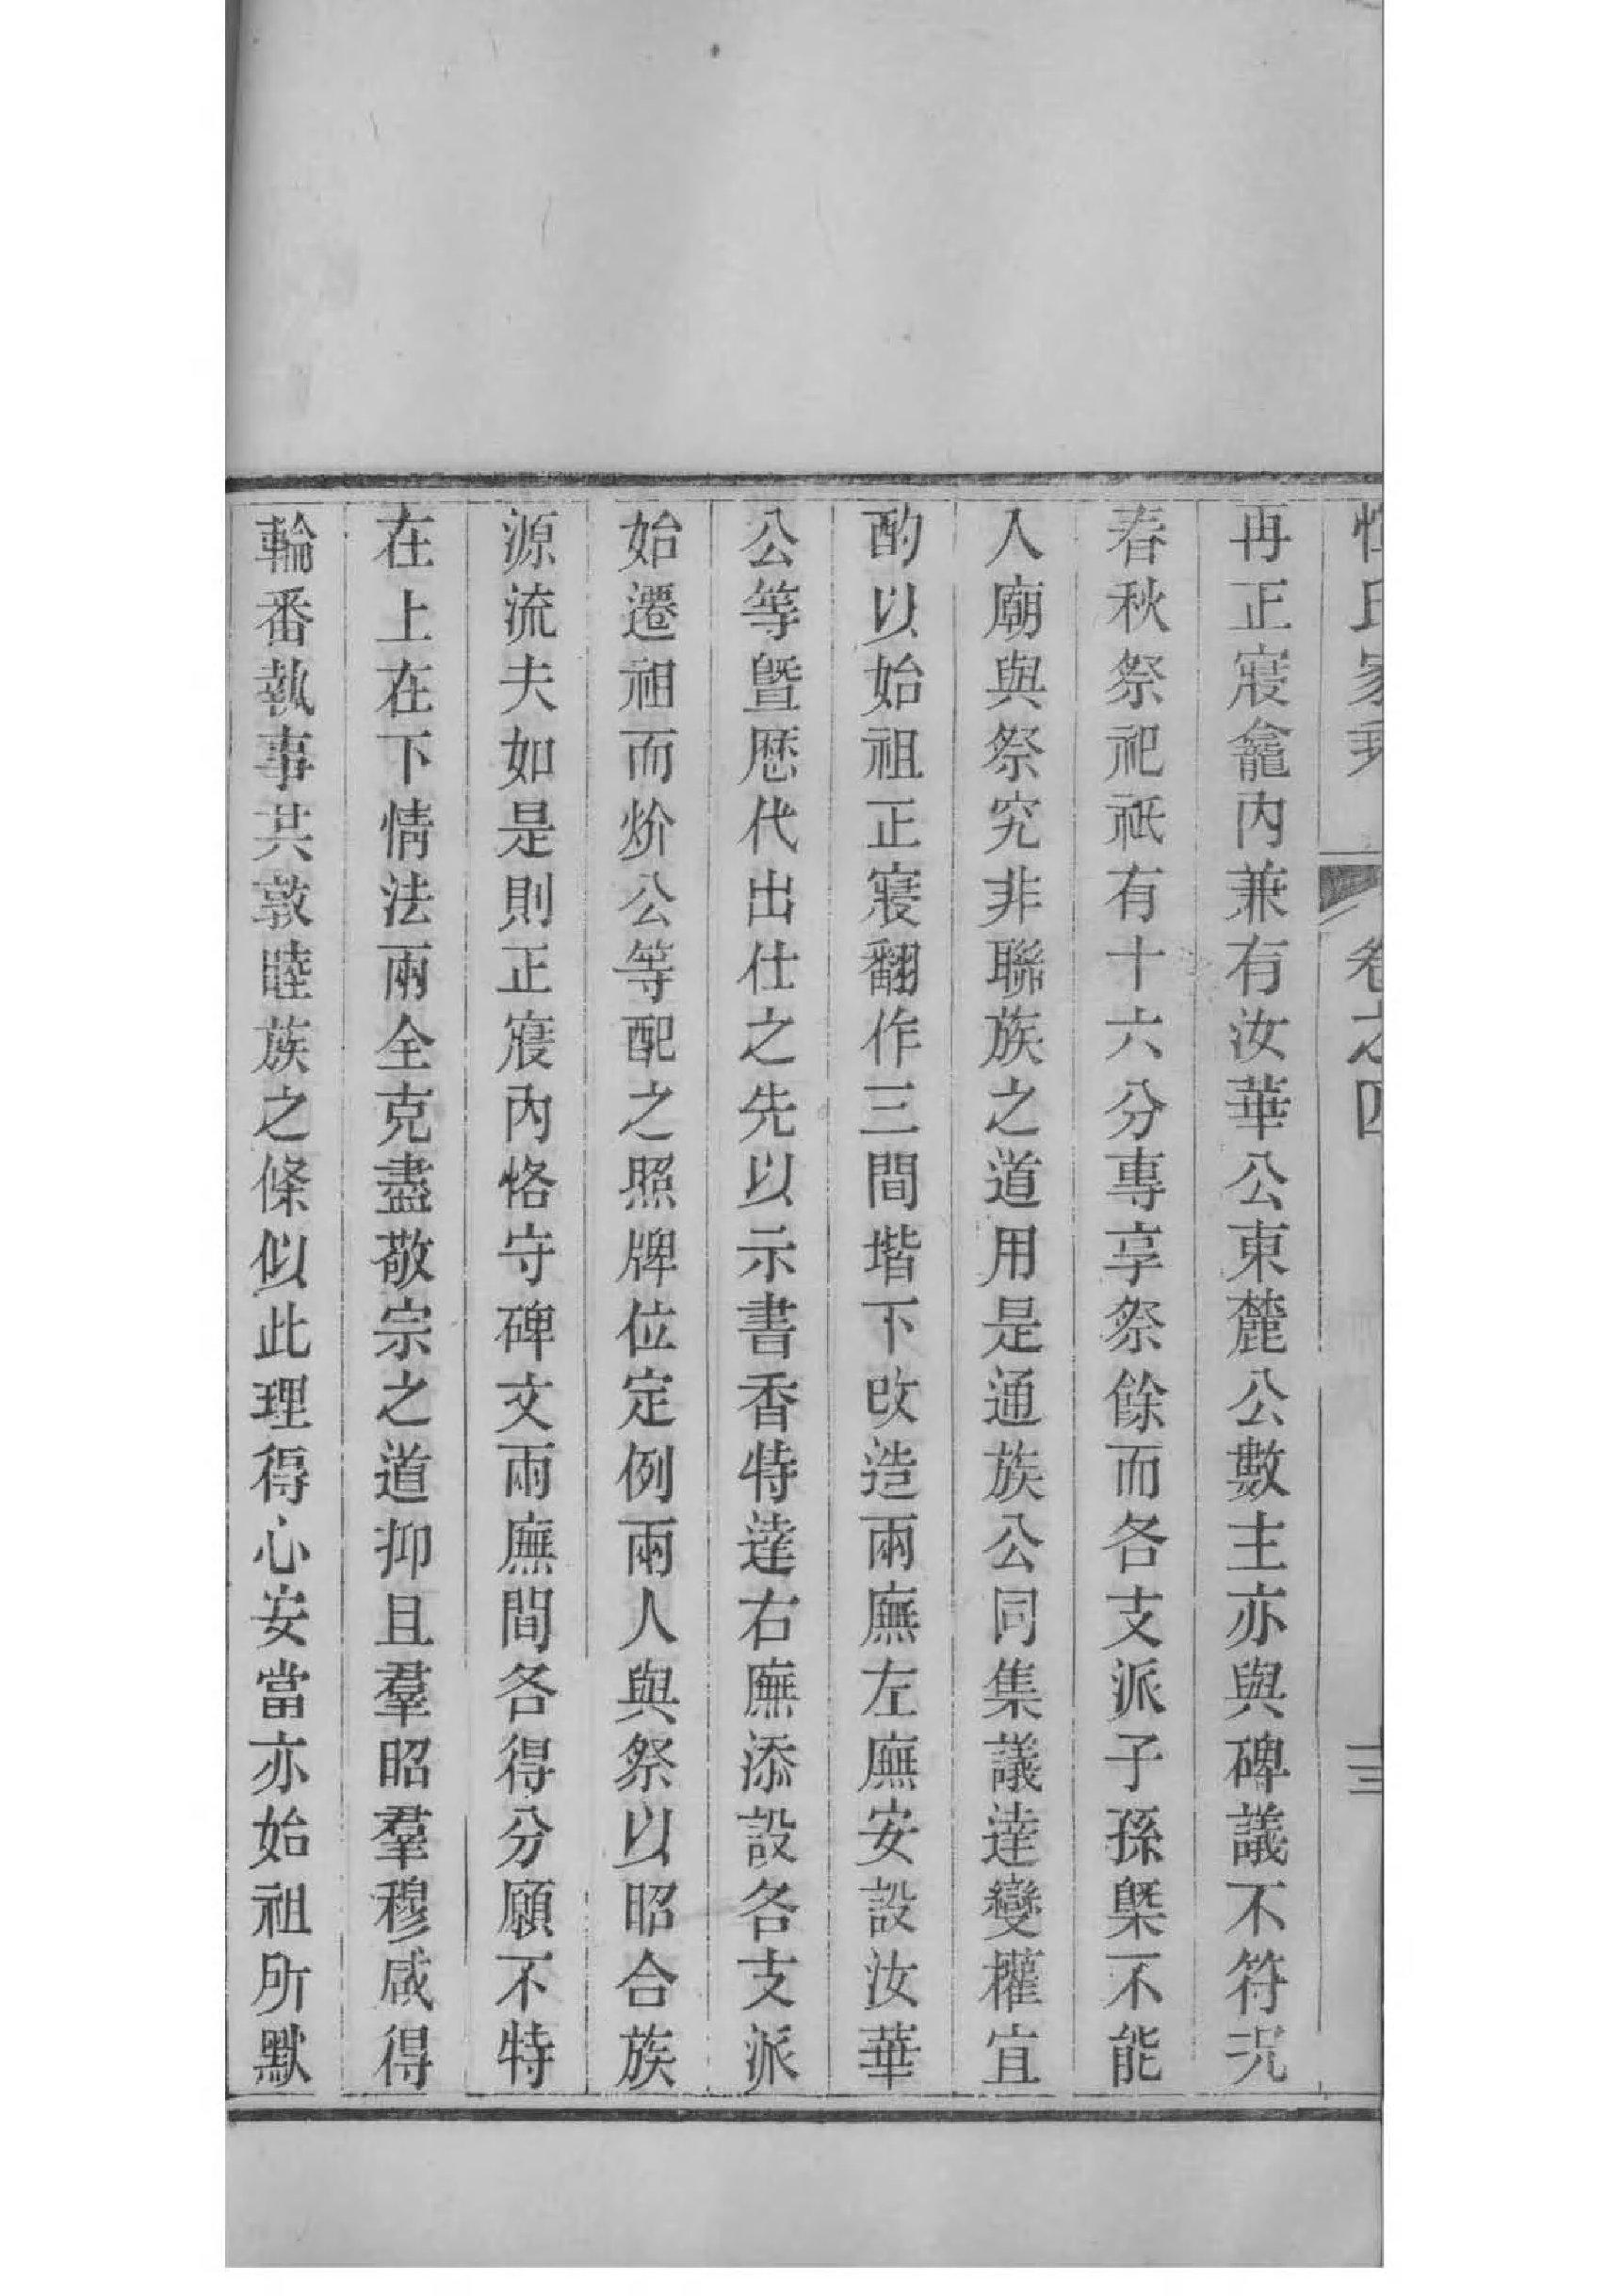 氏家乘 卷之四 三
再正寢龕內兼有汝華公東麓公數主亦與碑議不符况
春秋祭祀祇有十六分專享祭餘而各支派子孫槩不能
人廟與祭究非聯族之道用是通族公同集議達變權宜
酌以始祖正寢翻作三間堦下改造兩廡左廡安設汝華
公等曁歷代出仕之先以示書香特達右廡添設各支派
始遷祖而炌公等配之照牌位定例兩人與祭以昭合族
源流夫如是則正寢內恪守碑文兩廡間各得分願不特
在上在下情法兩全克盡敬宗之道抑且羣昭羣穆咸得
輪番執事共敦睦族之條似此理得心安當亦始祖所默